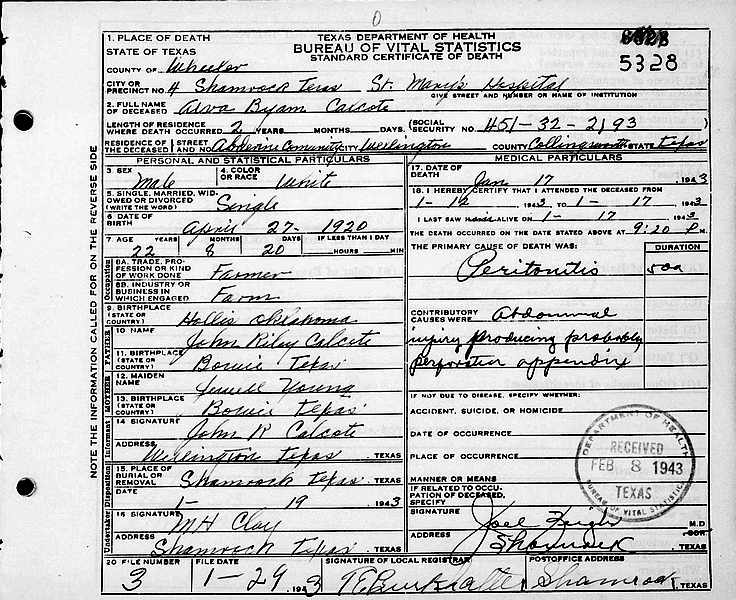 0
TEXAS DEPARTMENT OF HEALTH
BUREAU OF VITAL STATISTICS
STANDARD CERTIFICATE OF DEATH
5328
1. PLACE OF DEATH
STATE OF TEXAS
COUNTY OF Wheeler
CITY OR PRECINCT NO. 4 Shamrock Texas St. Mary's Hospital
GIVE STREET AND NUMBER OR NAME OF INSTITUTION
2. FULL NAME OF DECEASED Alva Byam Calcote
LENGTH OF RESIDENCE WHERE DEATH OCCURRED 2 YEARS MONTHS DAYS. (SOCIAL SECURITY NO. 451-32-2193
RESIDENCE OF THE DECEASED (STREET AND NO. Abilene Comunity CITY Wellington COUNTY Collingsworth STATE Texas
PERSONAL AND STATISTICAL PARTICULARS
3. SEX Male 4. COLOR OR RACE White
5. SINGLE, MARRIED, WIDOWED OR DIVORCED (WRITE THE WORD) Single
6. DATE OF BIRTH April 27- 1920
7. AGE 22 YEARS 8 MONTHS 20 DAYS IF LESS THAN 1 DAY HOURS MIN
Occupation
8A. TRADE, PROFESSION OR KIND OF WORK DONE Farmer
8B. INDUSTRY OR BUSINESS IN WHICH ENGAGED Farm
9. BIRTHPLACE (STATE OR COUNTRY) Hollis Oklahoma
FATHER
10 NAME John Riley Calcote
11. BIRTHPLACE (STATE OR COUNTRY) Bowie Texas
MOTHER
12. MAIDEN NAME Jewell Young
13. BIRTHPLACE (STATE OR COUNTRY) Bowie Texas
Informant
14 SIGNATURE John R Calcote
ADDRESS Wellington Texas TEXAS
Disposition
15. PLACE OF BURIAL OR REMOVAL Shamrock Texas TEXAS
DATE 1- 19 1943
Undertaker
16 SIGNATURE MH Clay
ADDRESS Shamrock Texas TEXAS
MEDICAL PARTICULARS
17. DATE OF DEATH Jan 17 1943
18. I HEREBY CERTIFY THAT I ATTENDED THE DECEASED FROM
1-12 1943 TO 1-17 1943
I LAST SAW ALIVE ON 1-17 1943
THE DEATH OCCURRED ON THE DATE STATED ABOVE AT 9:20 P.M.
THE PRIMARY CAUSE OF DEATH WAS: DURATION
Peritonitis
CONTRIBUTORY CAUSES WERE Abdominal
injury producing probably
perforation appendix
IF NOT DUE TO DISEASE, SPECIFY WHETHER:
ACCIDENT, SUICIDE, OR HOMICIDE
DATE OF OCCURRENCE
PLACE OF OCCURRENCE
MANNER OR MEANS
IF RELATED TO OCCUPATION OF DECEASED, SPECIFY
SIGNATURE Joel M.D. OR
ADDRESS Shamrock TEXAS
DEPARTMENT OF HEALTH
RECEIVED
FEB 8 1943
TEXAS
BUREAU OF VITAL STATISTICS
20 FILE NUMBER 3 FILE DATE 1-29 1943
SIGNATURE OF LOCAL REGISTRAR
POSTOFFICE ADDRESS Shamrock TEXAS
NOTE THE INFORMATION CALLED FOR ON THE REVERSE SIDE